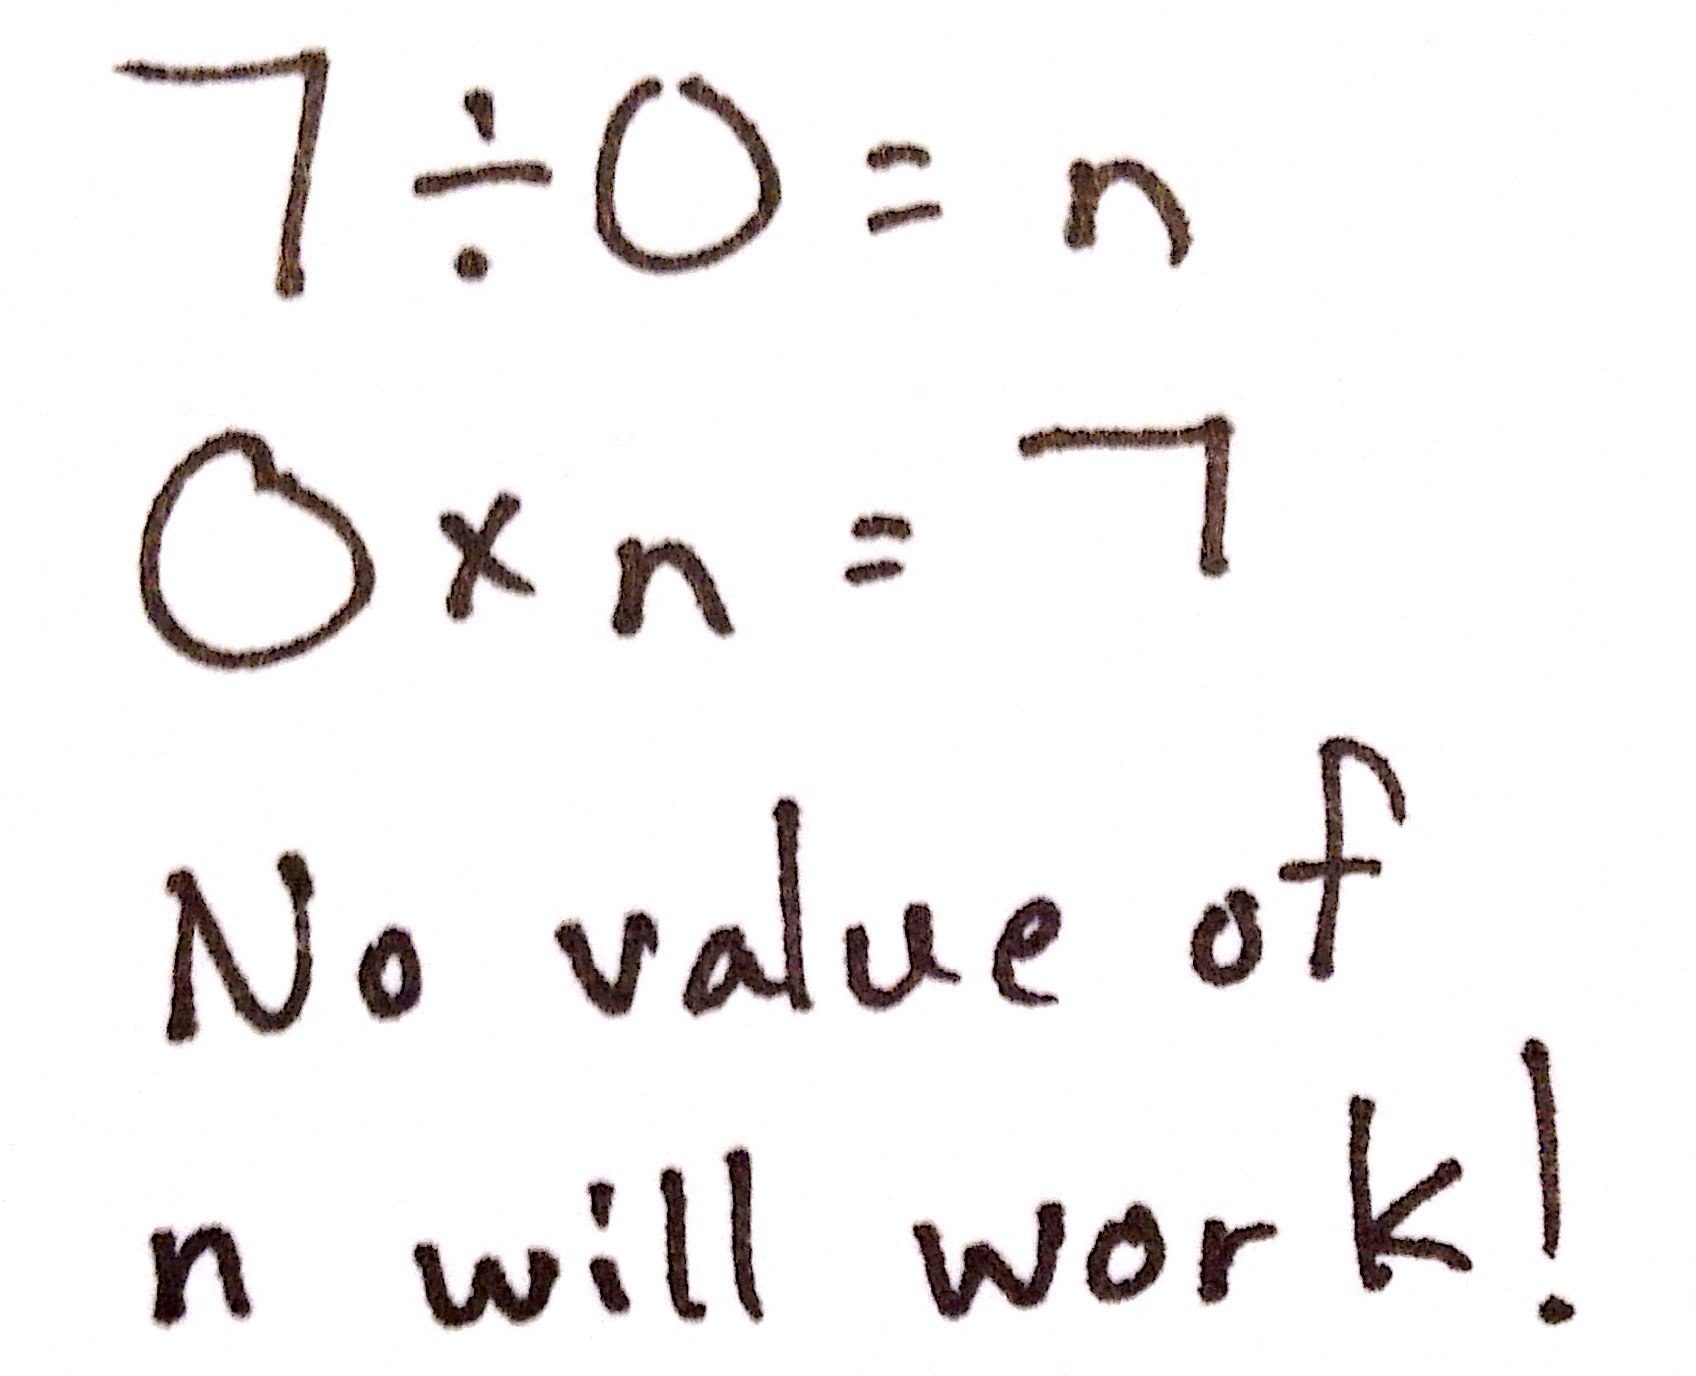 7 ÷ 0 = n
0 × n = 7
No value of
n will work!